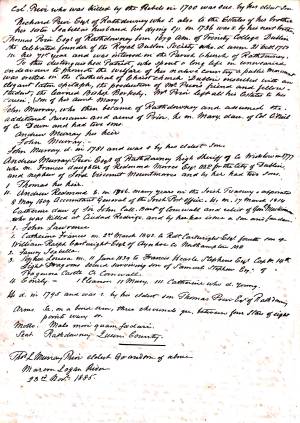 Col. Prior who was killed by the Rebels in 1700 was suc. by his eldest Son
Richard Prior Esqr of Rathdowney who s. also to the Estates of his brother
his Sister Isabella husband but dying s.p. in 1726 was s. by his next brother
Thomas Prior Esqr of Rathdowney born 1679 Ann. of Trinity College Dublin
the celebrated founder of the Royal Dublin Society who d. unm. 21 Oct 1751
in his 71st year and was interred in the Parish Church of Rathdowney
To this distinguished Patriot, who spent a long life in unwearied
endeavours to promote the welfare of his native country a public monument
was erected in the Cathedral of Christ Church Dublin inscribed with an
elegant Latin epitaph, the production of Mr Prior's friend and fellow
Student the learned Bishop Berkeley. Mr Prior left his Estates to his
cousin, (Son of his Aunt Mary)
John Murray, who then became of Rathdowney and assumed the
additional surname and arms of Prior, he m. Mary, daur. of Col. Odiel
of Co. Down and had two sons
Andrew Murray his heir
John Murray.
John Murray d. in 1781 and was s. by his eldest son
Andrew Murray Prior Esqr of Rathdowney high Sheriff of Co Wicklow in 1777
who m. Frances daughter of Redmond Morres Esqr MP for the city of Dublin
and sister of Lord Viscount Mountmorres and by her had two sons.
1 Thomas his heir
11 Andrew Redmond b. in 1786, many years in the Irish Treasury & appointed
8 May 1809 Accountant General of the Irish Post Office; He m. 17 March 1814
Catherine daur of Sir John
who was killed at Ciudad Rodrigo, and by her has issue a son and four daurs
1 John Lawrence
2 Catherine Frances m. 2nd March 1842 to Robt Cartwright Esqr fourth son of
William Ralph Cartwright Esqr of Aynhoe Co Northampton MP
1 Fanny Isabella
3 Sylvia Louisa m. 11 June 1839 to Francis Hearle Stephens Esqr Capt 14th
Light Dragoons second surviving son of Samuel Stephens Esqr of
Tregenna Castle Co Cornwall
4 Emily 1 Eleanor 11 Mary, 111 Catherine who d. young.
He d. in 1795 and was s. by his eldest son Thomas Prior Esqr of Rathdowney
Arms Sa. on a bend erm. three chevronels gu. between four stars of eight
points wavy or.
Motto. Malo mori quam foedari.
Seat Rathdowney Queens County.
Thos L Murray Prior eldest Grandson of above
Maroon Logan River
23rd Novr 1885.